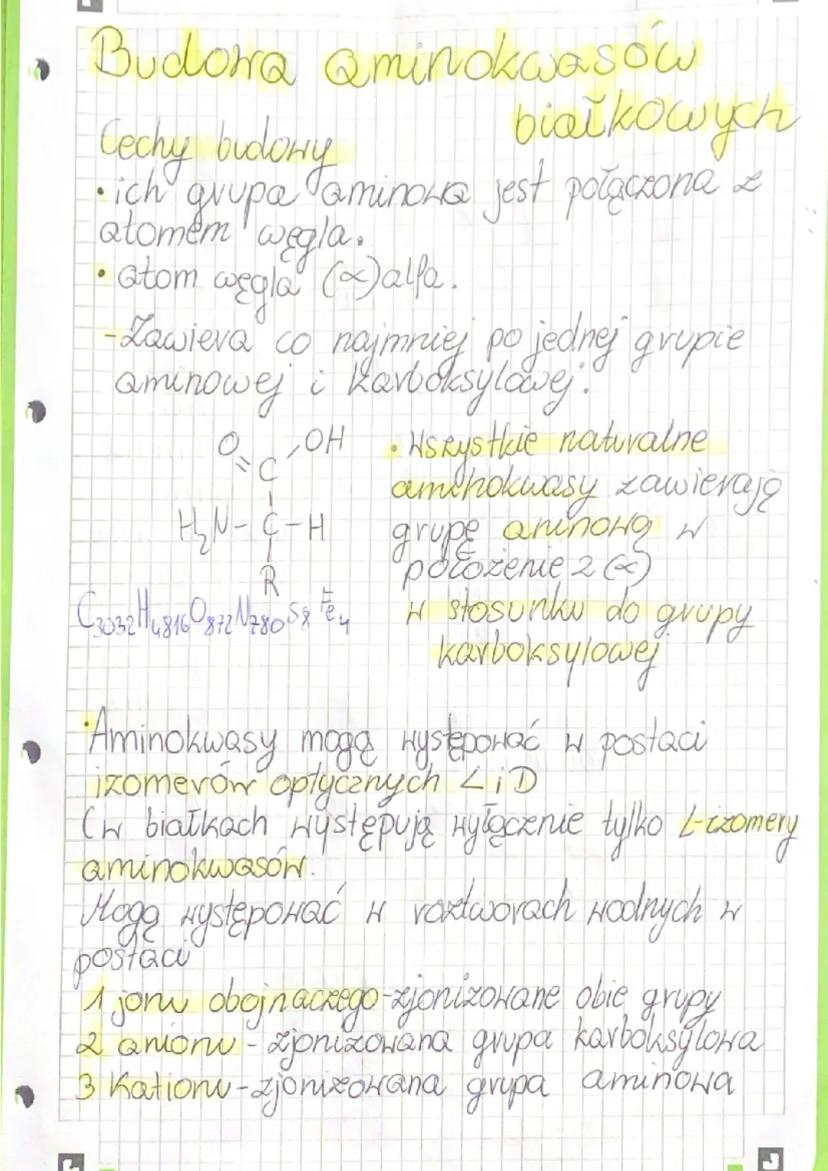 Budowa aminokwasów
białkowych
Cechy budowy
• ich grupa aminowa jest połączona z
atomem węgla.
• atom węgla (∝) alfa.
- Zawiera co najmniej po jednej grupie
aminowej i karboksylowej.
O OH
C
H₂N - C - H
R
C₃₀₃₂H₄₈₁₆O₈₇₂N₇₈₀S₈Fe₄
• Wszystkie naturalne
aminokwasy zawierają
grupę aminową w
położenie 2 (∝)
w stosunku do grupy
karboksylowej
• Aminokwasy mogą występować w postaci
izomerów optycznych L i D
(w białkach występują wyłącznie tylko L-izomery
aminokwasów.
Mogą występować w roztworach wodnych w
postaci
1 jonu obojnaczego - zjonizowane obie grupy
2 anionu - zjonizowana grupa karboksylowa
3 Kationu - zjonizowana grupa aminowa